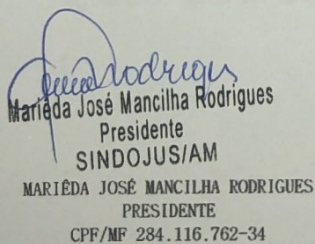 Mariêda José Mancilha Rodrigues
Presidente
SINDOJUS/AM
MARIÊDA JOSÉ MANCILHA RODRIGUES
PRESIDENTE
CPF/MF 284.116.762-34